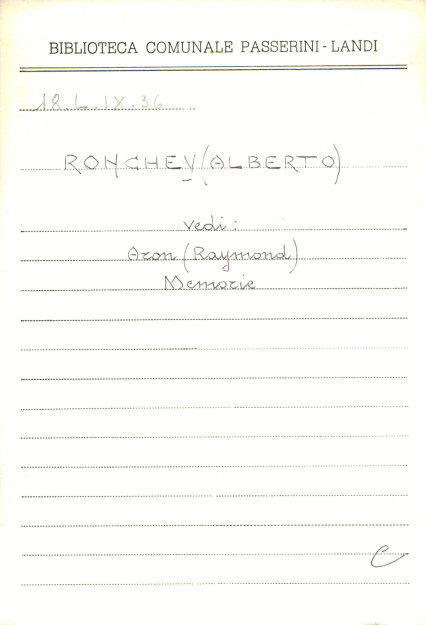 BIBLIOTECA COMUNALE PASSERINI - LANDI
18. L. IX. 36
RONCHEY (ALBERTO)
vedi :
Aron (Raymond)
Memorie
C